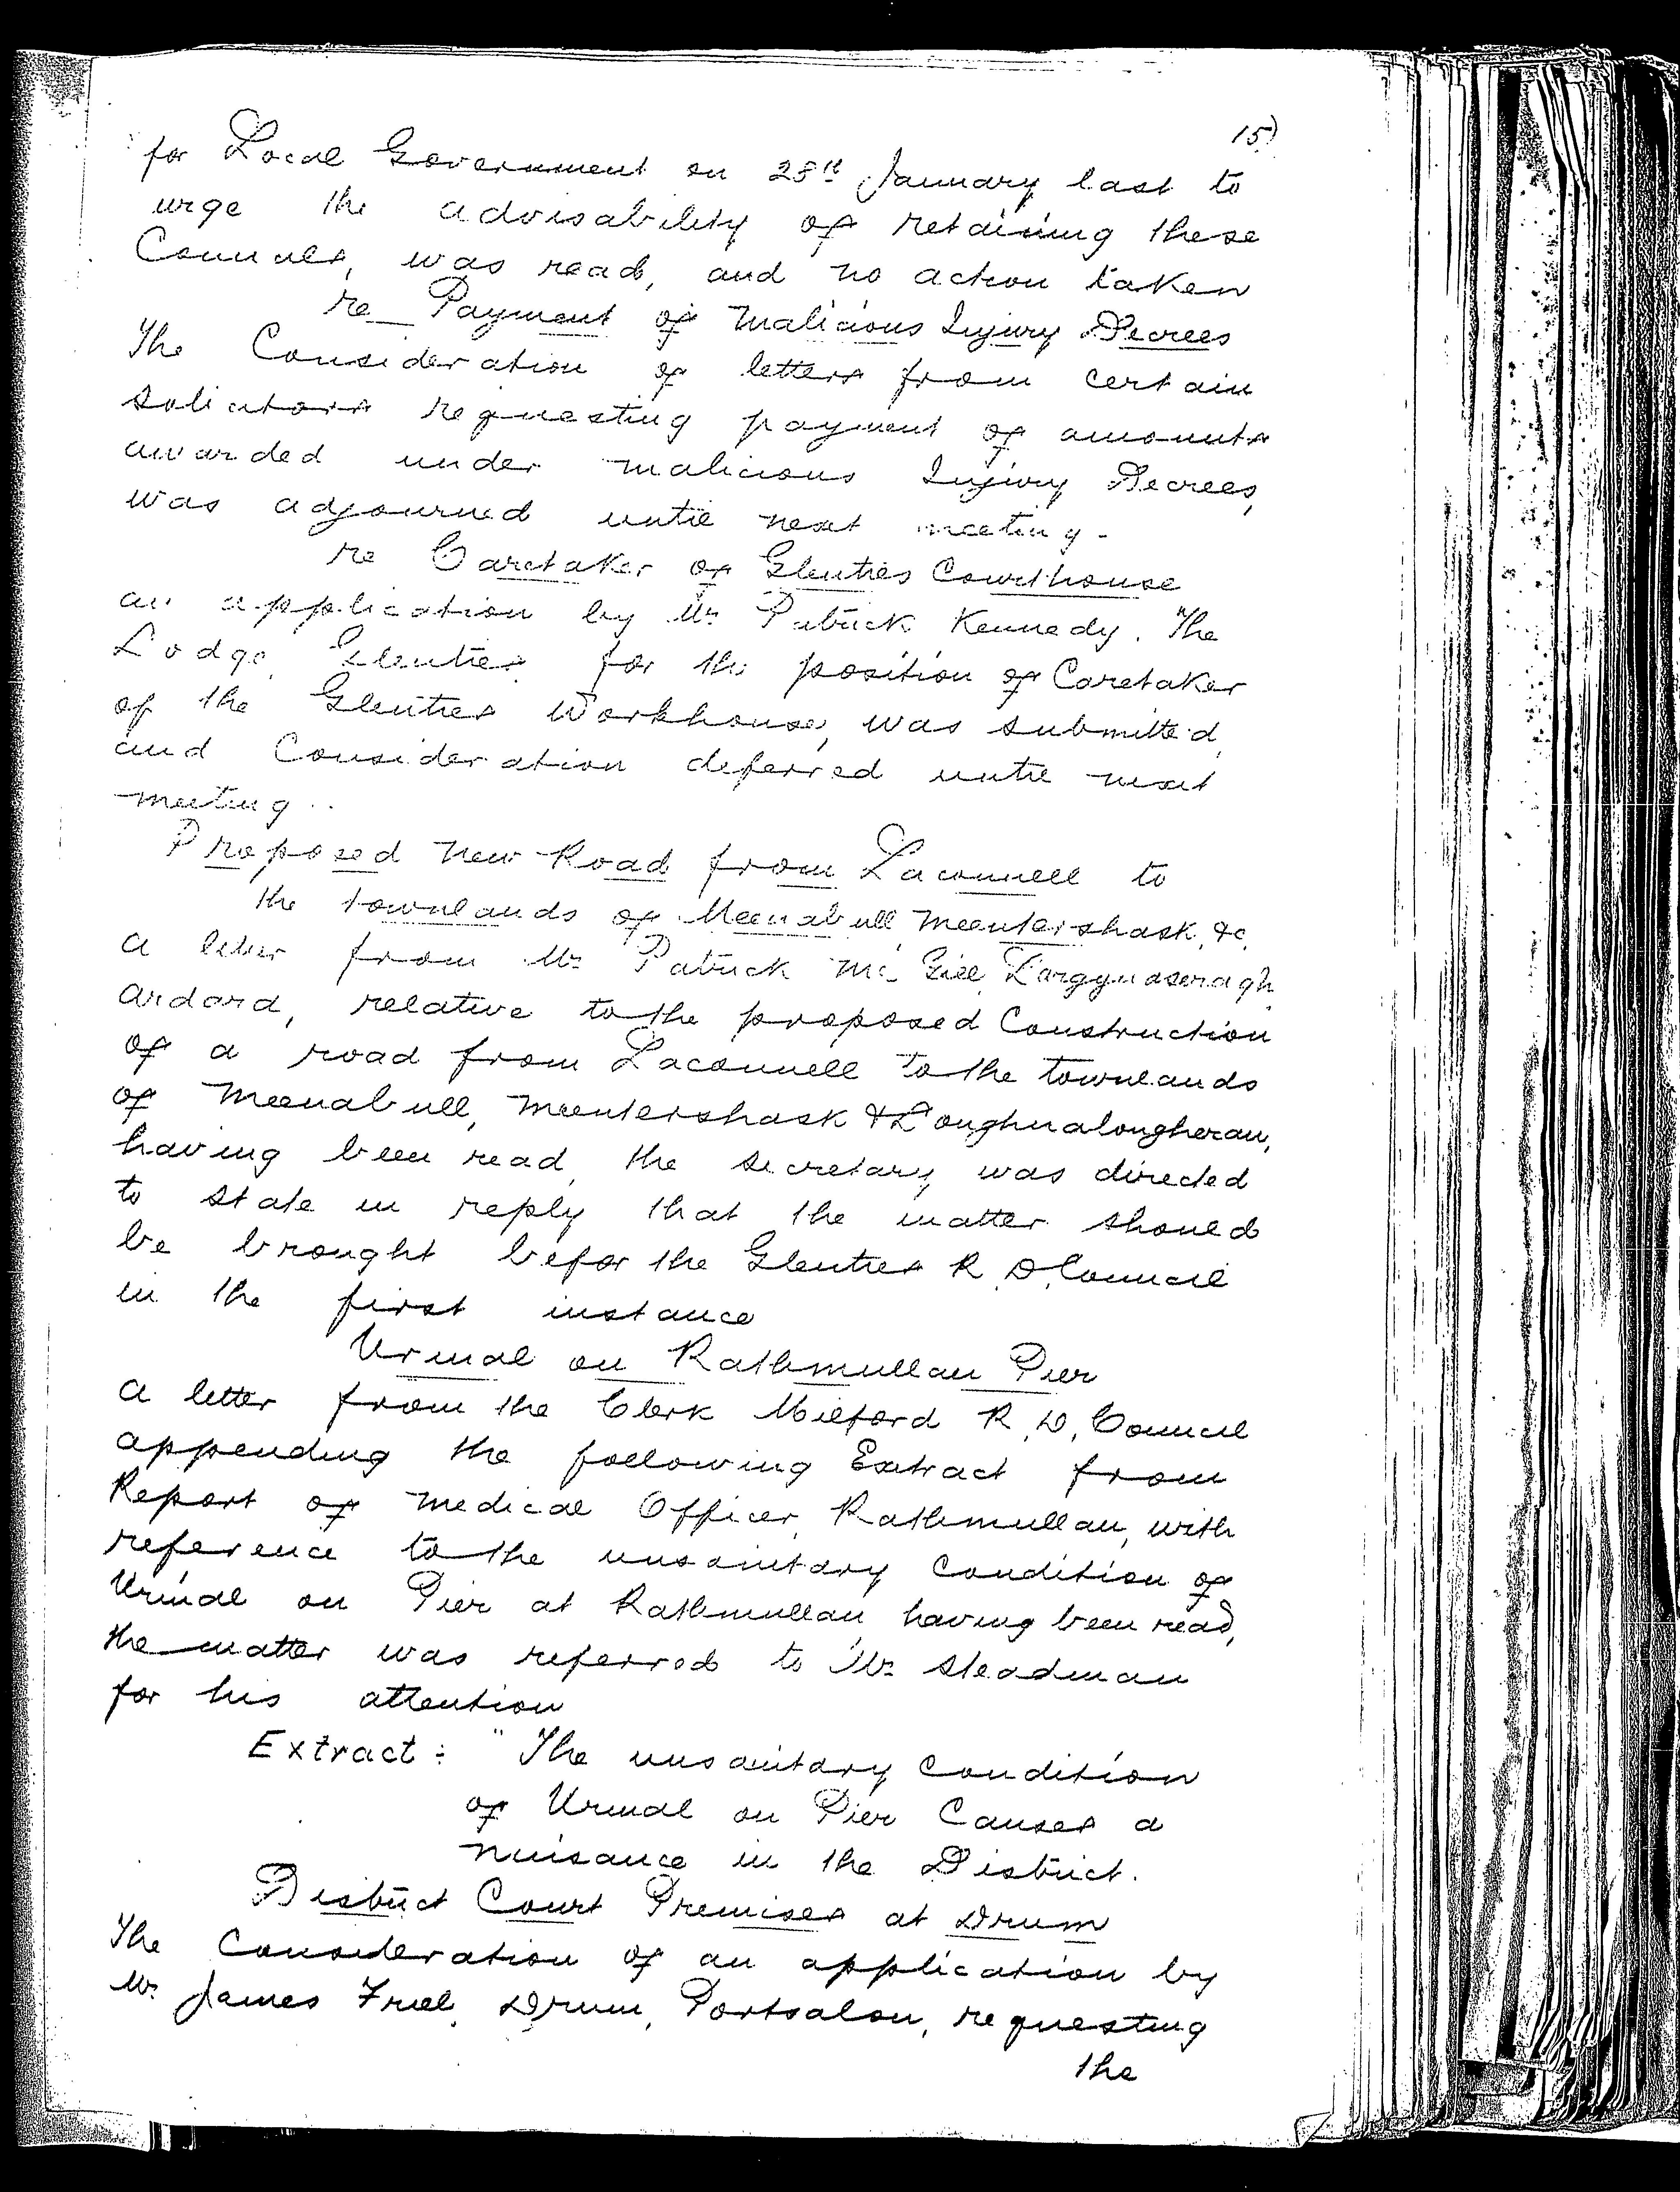 15)
for Local Government on 28th January last to
urge the advisability of retaining these
Councils, was read, and no action taken
re Payment of Malicious Injury Decrees
The Consideration of letters from certain
solicitors requesting payment of amounts
awarded under malicious Injury Decrees,
was adjourned until next meeting -
re Caretaker of Glenties Courthouse
an application by Mr Patrick Kennedy. The
Lodge, Glenties for the position of Caretaker
of the Glenties Workhouse, was submitted,
and Consideration deferred until next
meeting ..
Proposed New Road from Laconnell to
the townlands of Meenabull, Meentershask, &c.
a letter from Mr Patrick McGill
ardara, relative to the proposed Construction
of a road from Laconnell to the townlands
of Meenabull, Meentershask & Loughnalougheran,
having been read, the secretary was directed
to state in reply that the matter should
be brought befor the Glenties R. D. Council
in the first instance
Urinal on Rathmullan Pier
a letter from the Clerk Milford R. D. Council
appending the following Extract from
Report of Medical Officer, Rathmullan, with
reference to the unsanitary Condition of
Urinal on Pier at Rathmullan having been read,
the matter was referred to Mr Steadman
for his attention
Extract: "The unsanitary Condition
of Urinal on Pier Causes a
nuisance in the District.
District Court Premises at Drum
The Consideration of an application by
Mr James Friel, Drum, Portsalon, requesting
the